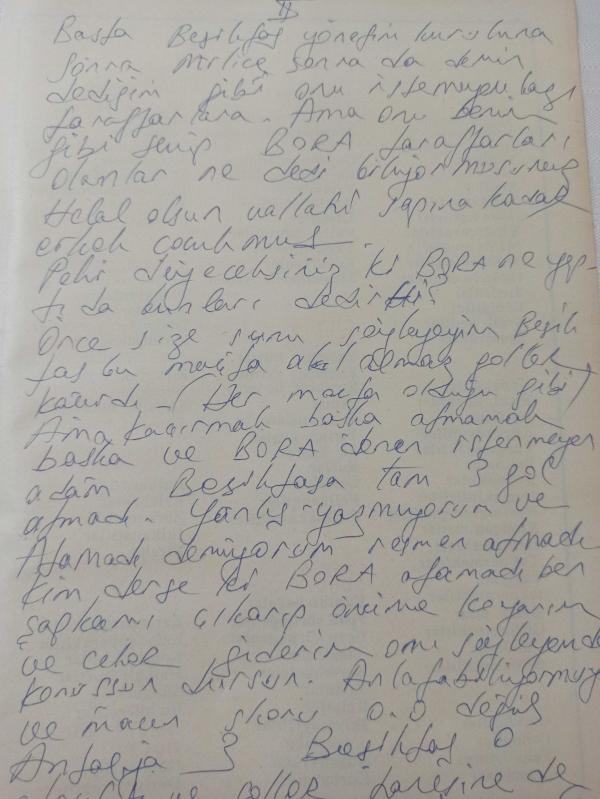 II
Başta Beşiktaş yönetim kuruluna
sonra Milice sonra da demin
dediğim gibi onu istemeyen bazı
taraftarlara. Ama onu benim
gibi sevip BORA taraftarları
olanlar ne dedi biliyormusunuz
Helal olsun vallahi sapına kadar
erkek çocukmuş.
Peki diyeceksiniz ki BORA ne yap-
tı da bunları dedirtti?
Önce size şunu söyleyeyim Beşik
taş bu maçta akıl almaz goller
kaçırdı - (Her maçta olduğu gibi)
Ama kaçırmak başka atmamak
başka ve BORA denen istenmeyen
adam Beşiktaşa tam 3 gol
atmadı. Yanlış yazmıyorum ve
Atamadı demiyorum resmen atmadı
kim derse ki BORA atamadı ben
şapkamı çıkarıp önüme koyarım
ve çeker giderim onu söyleyende
konuşsun dursun. Anlatabiliyormuyum
ve maçın skoru 0.0 değil
Antalya 3 Beşiktaş 0
ve goller